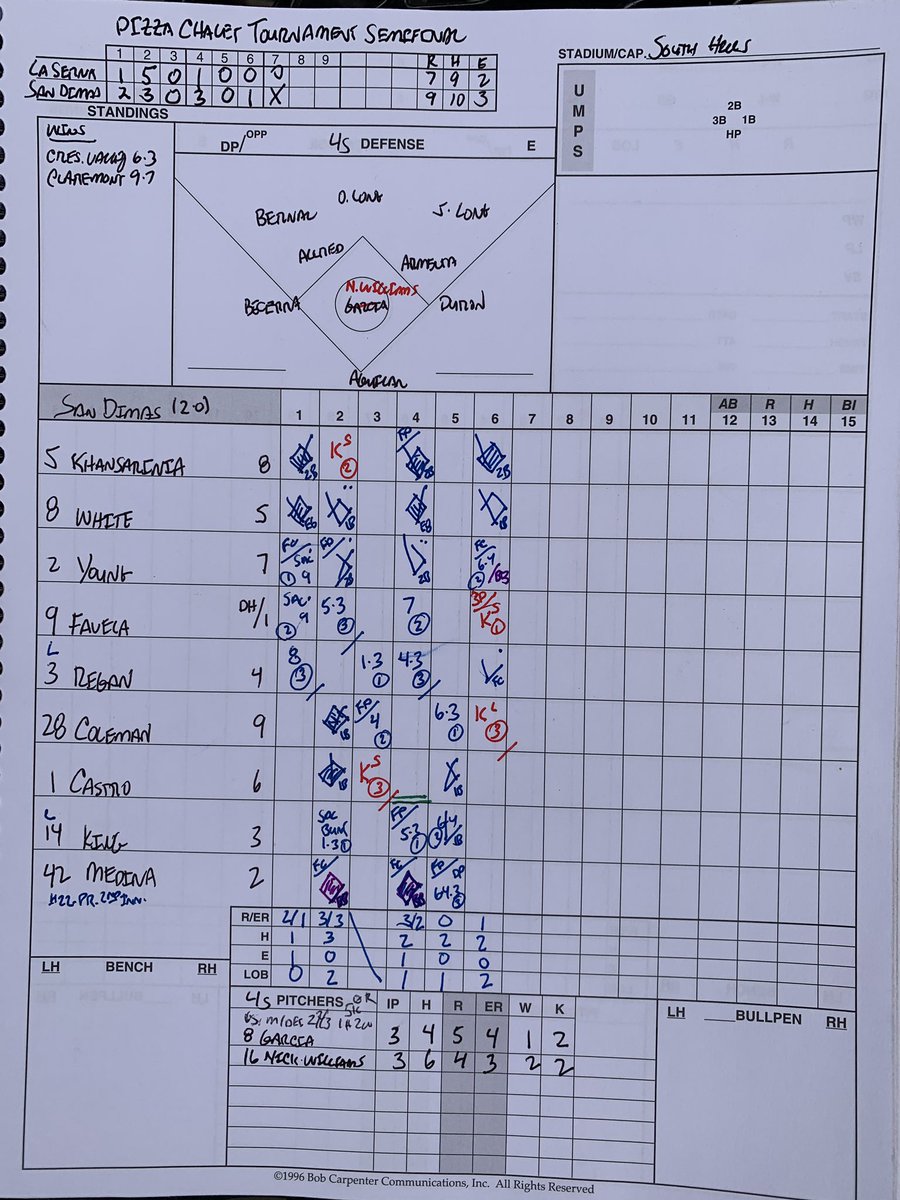 PIZZA CHALET TOURNAMENT SEMIFINAL
STADIUM/CAP. SOUTH HILLS
1 2 3 4 5 6 7 8 9 R H E
LA SERNA 1 5 0 1 0 0 0 7 9 2
SAN DIMAS 2 3 0 3 0 1 X 9 10 3
STANDINGS
WINS
CRES. VALLEY 6-3
CLAREMONT 9-7
DP/OPP 4S DEFENSE E
UMPS
2B
3B 1B
HP
BERNAL O. LONG J. LONG
ALLRED ARMENTA
BECERRA N. WILLIAMS DURON
GARCIA
AGUILAR
SAN DIMAS (2-0) 1 2 3 4 5 6 7 8 9 10 11 12 13 14 15
AB R H BI
5 KHANSARINIA 8 2B KS 2 FP 2B 2B
8 WHITE 5 1B 1B
2 YOUNG 7 SAC 9 1 FP 1B 2B FC 6-4 2 BB
9 FAVELA DH/1 SAC 9 2 5-3 3 7 2 KS 1
L 3 REGAN 4 8 3 1-3 1 4-3 3 FC
28 COLEMAN 9 1B FP 4 2 6-3 1 KL 3
1 CASTRO 6 1B KS 3 1B
L 14 KING 3 SAC BUNT 1-3 1 FP 5-3 1 6-4 1B
42 MEDINA 2 FP BB FP DP 64-3 3
H22 PR. 2ND INN.
R/ER 2/1 3/3 3/2 0 1
H 1 3 2 2 2
E 1 0 1 0 0
LOB 0 2 1 1 2
LH BENCH RH
4S PITCHERS IP H R ER W K
8 GARCIA 3 4 5 4 1 2
16 NICK WILLIAMS 3 6 4 3 2 2
LH BULLPEN RH
©1996 Bob Carpenter Communications, Inc. All Rights Reserved